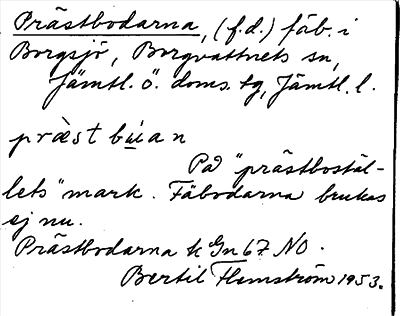 Prästbodarna, (f.d.) fäb. i
Borgsjö, Borgvattnets sn,
Jämtl. ö. doms. tg, Jämtl. l.
præ̀st bu̱an
På "prästbostäl-
lets" mark. Fäbodarna brukas
ej nu.
Prästbodarna k Gn 67 NO.
Bertil Flemström 1953.